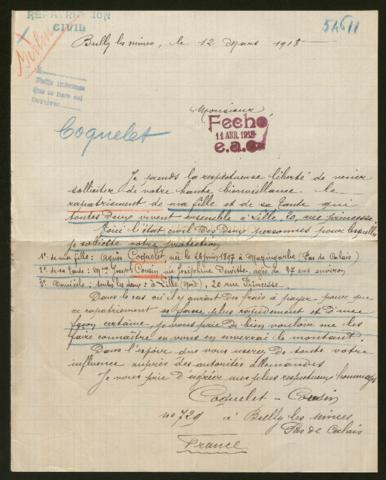 REPATRIACION
CIVIL
54611
Bully les mines, le 12 Mars 1918
Coquelet
Monsieur
Fecho
11 ABR. 1918
e.a.c.
Je prends la respectueuse liberté de venir
solliciter de votre haute bienveillance le
rapatriement de ma fille et de sa tante qui
toutes deux vivent ensemble à Lille, 20, rue princesse.
Voici l'état civil des deux personnes pour lesquelles
je sollicite votre protection,
1° de ma fille: Agnès Coquelet, née le juin 1907 à Mazingarbe (Pas de Calais)
2° de sa tante: Mme Cousin, née Joséphine agée de 47 ans environ
3° Domicile: toutes les deux: à Lille (Nord), 20 rue Princesse.
Dans le cas où il y aurait des frais à payer pour que
ce rapatriement se fasse plus rapidement et d'une
façon certaine, je vous prie de bien vouloir me les
faire connaître en vous en enverrai le montant.
Dans l'espoir que vous userez de toute votre
influence auprès des autorités allemandes
Je vous prie d'agréer mes plus respectueux hommages
Coquelet - Cousin
no 729 à Bully les mines
Pas de Calais
France